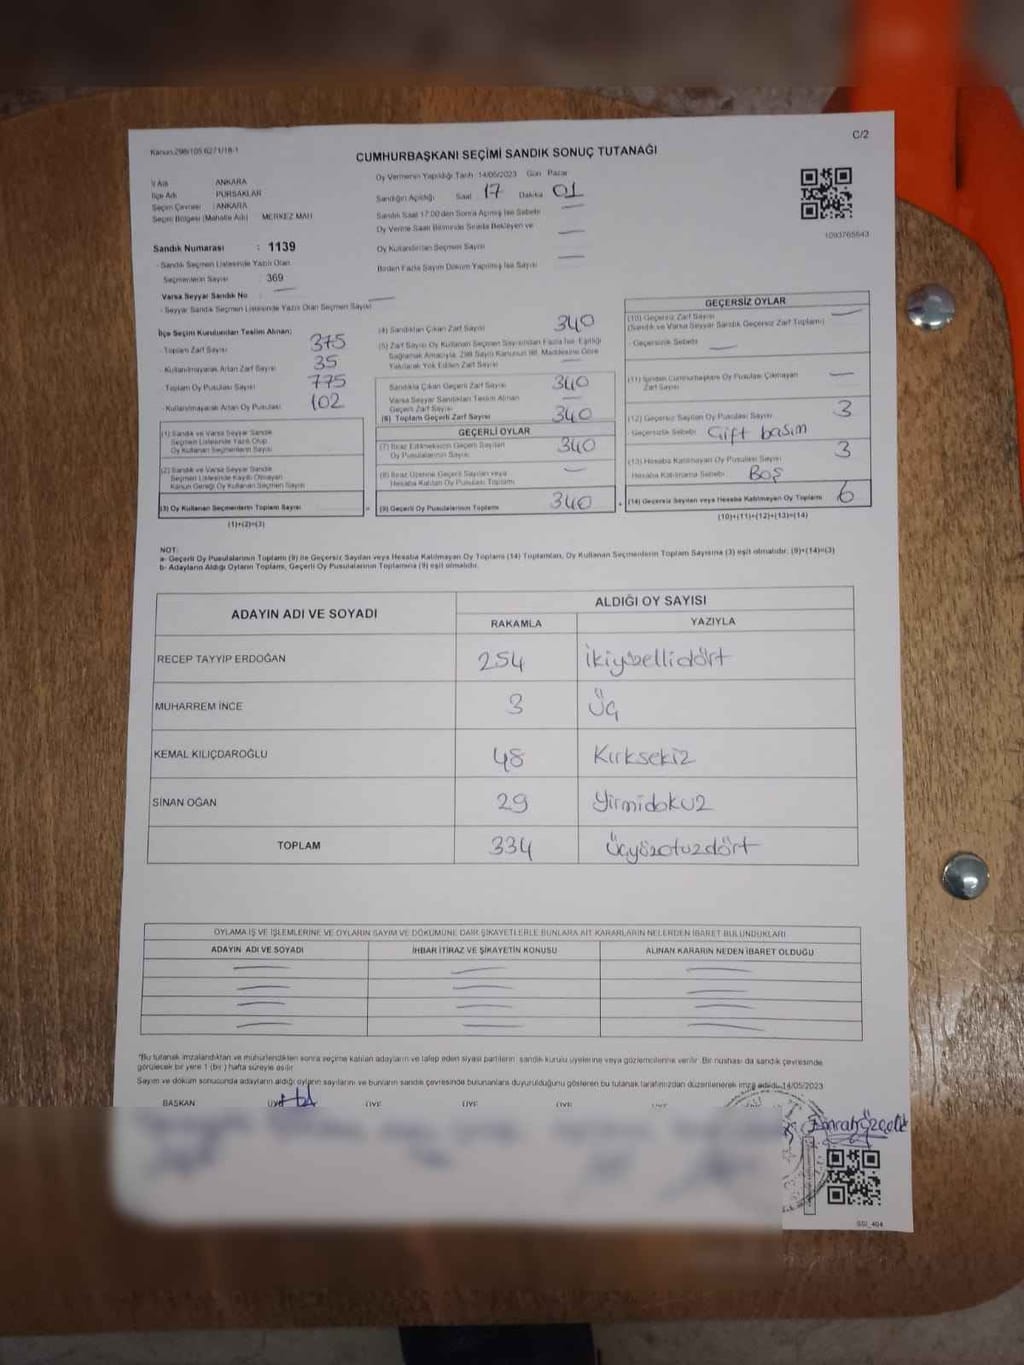 Kanun:298/105 6271/18-1
C/2
CUMHURBAŞKANI SEÇİMİ SANDIK SONUÇ TUTANAĞI
İl Adı : ANKARA
İlçe Adı : PURSAKLAR
Seçim Çevresi : ANKARA
Seçim Bölgesi (Mahalle Adı) MERKEZ MAH
Oy Vermenin Yapıldığı Tarih: 14/05/2023 Gün Pazar
Sandığın Açıldığı Saat 17 Dakika 01
Sandık Saat 17:00'den Sonra Açılmış İse Sebebi
Oy Verme Saati Bitiminde Sırada Bekleyen ve
Oy Kullandırılan Seçmen Sayısı
Birden Fazla Sayım Döküm Yapılmış İse Sayısı
1093765643
Sandık Numarası : 1139
- Sandık Seçmen Listesinde Yazılı Olan
Seçmenlerin Sayısı 369
Varsa Seyyar Sandık No
- Seyyar Sandık Seçmen Listesinde Yazılı Olan Seçmen Sayısı
İlçe Seçim Kurulundan Teslim Alınan;
- Toplam Zarf Sayısı 375
- Kullanılmayarak Artan Zarf Sayısı 35
- Toplam Oy Pusulası Sayısı 775
- Kullanılmayarak Artan Oy Pusulası 102
(1) Sandık ve Varsa Seyyar Sandık
Seçmen Listesinde Yazılı Olup
Oy Kullanan Seçmenlerin Sayısı
(2) Sandık ve Varsa Seyyar Sandık
Seçmen Listesinde Kayıtlı Olmayan
Kanun Gereği Oy Kullanan Seçmen Sayısı
(3) Oy Kullanan Seçmenlerin Toplam Sayısı
(1)+(2)=(3)
(4) Sandıktan Çıkan Zarf Sayısı 340
(5) Zarf Sayısı Oy Kullanan Seçmen Sayısından Fazla İse, Eşitliği
Sağlamak Amacıyla, 298 Sayılı Kanunun 98. Maddesine Göre
Yakılarak Yok Edilen Zarf Sayısı
Sandıkta Çıkan Geçerli Zarf Sayısı 340
Varsa Seyyar Sandıktan Teslim Alınan
Geçerli Zarf Sayısı
(6) Toplam Geçerli Zarf Sayısı 340
GEÇERLİ OYLAR
(7) İtiraz Edilmeksizin Geçerli Sayılan
Oy Pusulalarının Sayısı 340
(8) İtiraz Üzerine Geçerli Sayılan veya
Hesaba Katılan Oy Pusulası Toplamı
(9) Geçerli Oy Pusulalarının Toplamı 340
GEÇERSİZ OYLAR
(10) Geçersiz Zarf Sayısı
(Sandık ve Varsa Seyyar Sandık Geçersiz Zarf Toplamı)
- Geçersizlik Sebebi
(11) İçinden Cumhurbaşkanı Oy Pusulası Çıkmayan
Zarf Sayısı
(12) Geçersiz Sayılan Oy Pusulası Sayısı 3
- Geçersizlik Sebebi Çift basım
(13) Hesaba Katılmayan Oy Pusulası Sayısı 3
Hesaba Katılmama Sebebi Boş
(14) Geçersiz Sayılan veya Hesaba Katılmayan Oy Toplamı 6
(10)+(11)+(12)+(13)=(14)
NOT:
a- Geçerli Oy Pusulalarının Toplamı (9) ile Geçersiz Sayılan veya Hesaba Katılmayan Oy Toplamı (14) Toplamları, Oy Kullanan Seçmenlerin Toplam Sayısına (3) eşit olmalıdır. (9)+(14)=(3)
b- Adayların Aldığı Oyların Toplamı, Geçerli Oy Pusulalarının Toplamına (9) eşit olmalıdır.
ADAYIN ADI VE SOYADI ALDIĞI OY SAYISI
RAKAMLA YAZIYLA
RECEP TAYYİP ERDOĞAN 254 İkiyüzellidört
MUHARREM İNCE 3 Üç
KEMAL KILIÇDAROĞLU 48 Kırksekiz
SİNAN OĞAN 29 Yirmidokuz
TOPLAM 334 Üçyüzotuzdört
OYLAMA İŞ VE İŞLEMLERİNE VE OYLARIN SAYIM VE DÖKÜMÜNE DAİR ŞİKAYETLERLE BUNLARA AİT KARARLARIN NELERDEN İBARET BULUNDUKLARI
ADAYIN ADI VE SOYADI İHBAR İTİRAZ VE ŞİKAYETİN KONUSU ALINAN KARARIN NEDEN İBARET OLDUĞU
"Bu tutanak imzalandıktan ve mühürlendikten sonra seçime katılan adayların ve talep eden siyasi partilerin sandık kurulu üyelerine veya gözlemcilerine verilir. Bir nüshası da sandık çevresinde
görülecek bir yere 1 (bir) hafta süreyle asılır.
Sayım ve döküm sonucunda adayların aldığı oyların sayılarını ve bunların sandık çevresinde bulunanlara duyurulduğunu gösteren bu tutanak tarafımızdan düzenlenerek imza edildi. 14/05/2023
BAŞKAN ÜYE ÜYE ÜYE ÜYE